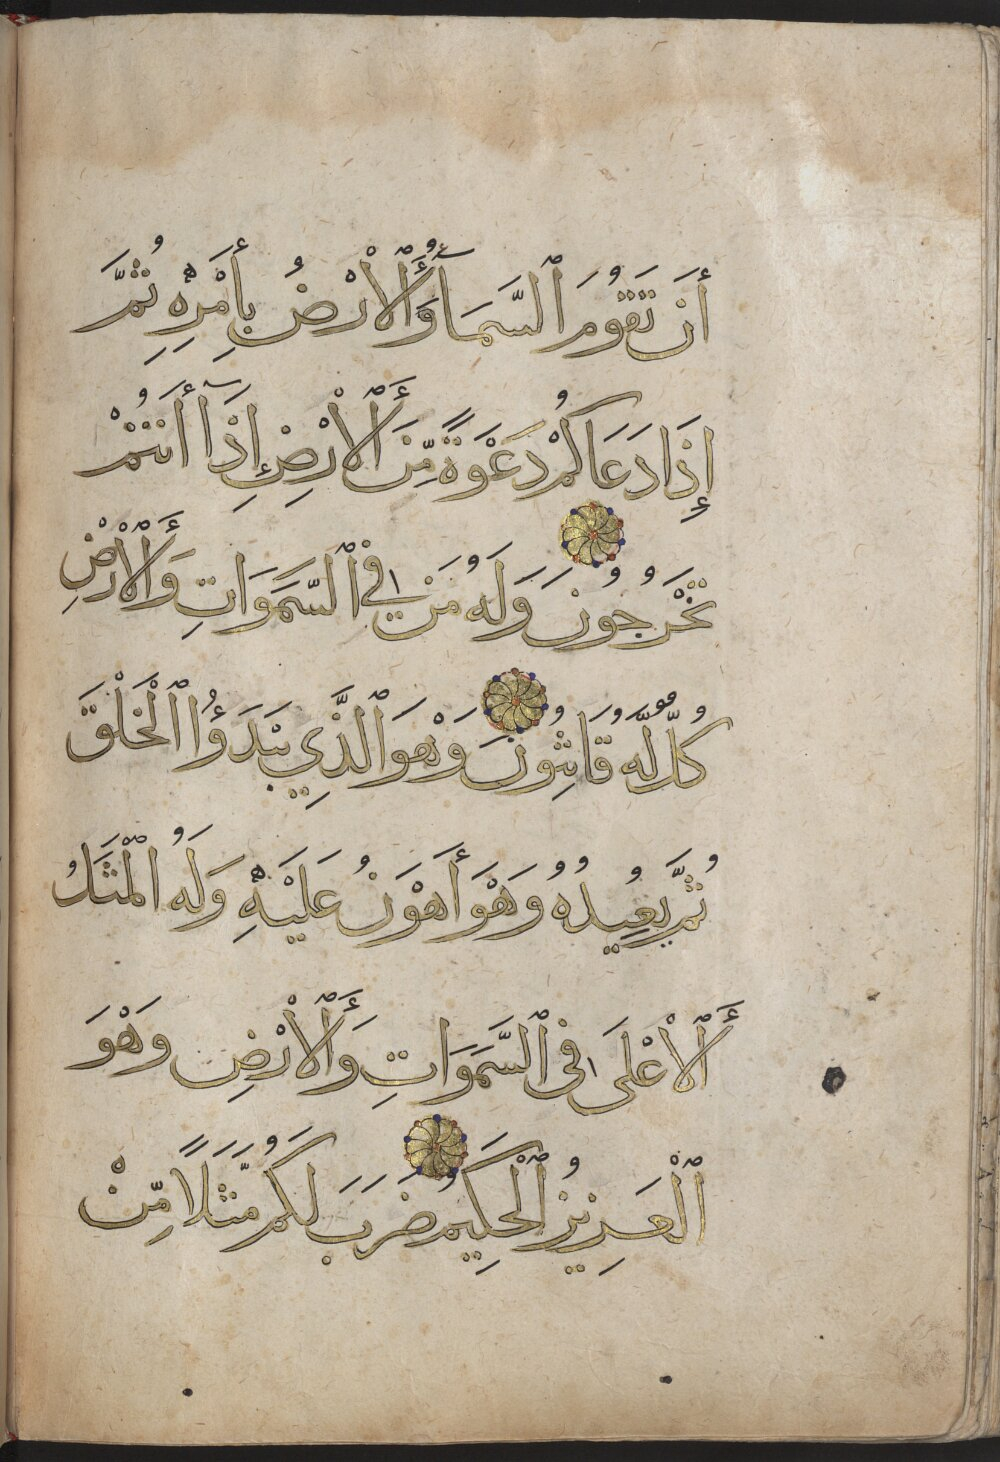 أَن تَقُومَ ٱلسَّمَآءُ وَٱلْأَرْضُ بِأَمْرِهِۦ ثُمَّ
إِذَا دَعَاكُمْ دَعْوَةً مِّنَ ٱلْأَرْضِ إِذَآ أَنتُمْ
تَخْرُجُونَ وَلَهُۥ مَن فِي ٱلسَّمَوَاتِ وَٱلْأَرْضِ
كُلٌّ لَّهُۥ قَانِتُونَ وَهْوَ ٱلَّذِي يَبْدَؤُا ٱلْخَلْقَ
ثُمَّ يُعِيدُهُۥ وَهْوَ أَهْوَنُ عَلَيْهِ وَلَهُ ٱلْمَثَلُ
ٱلْأَعْلَى فِي ٱلسَّمَوَاتِ وَٱلْأَرْضِ وَهْوَ
ٱلْعَزِيزُ ٱلْحَكِيمُ ضَرَبَ لَكُم مَّثَلًا مِّنْ